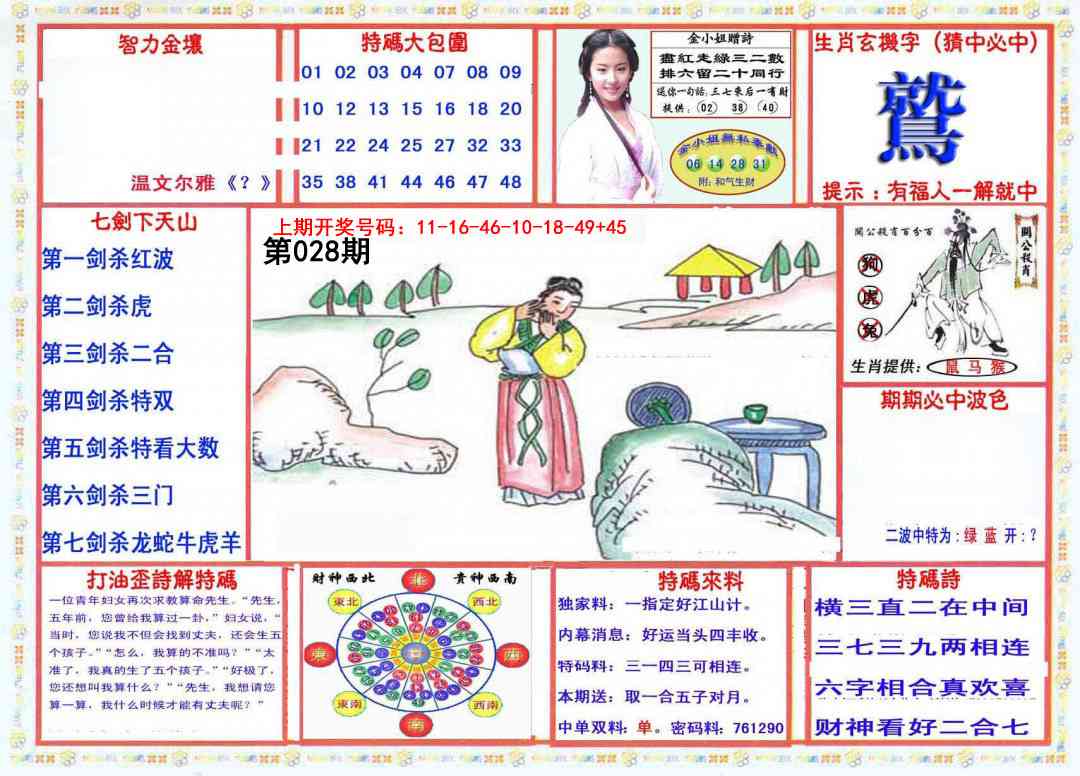 智力金壤
温文尔雅《？》
特碼大包圍
01 02 03 04 07 08 09
10 12 13 15 16 18 20
21 22 24 25 27 32 33
35 38 41 44 46 47 48
金小姐贈詩
盡紅走綠三二數
排六留二十同行
送你一句話：三七來后一有財
提供：(02) 38 (40)
金小姐無私奉獻
06 14 28 31
附：和气生財
生肖玄機字（猜中必中）
鷲
提示：有福人一解就中
七劍下天山
第一剑杀红波
第二剑杀虎
第三剑杀二合
第四剑杀特双
第五剑杀特看大数
第六剑杀三门
第七剑杀龙蛇牛虎羊
上期开奖号码：11-16-46-10-18-49+45
第028期
關公殺肖百分百
關公殺肖
狗
虎
兔
生肖提供：鼠 马 猴
期期必中波色
二波中特为：绿 蓝 开：？
打油歪詩解特碼
一位青年妇女再次求教算命先生。“先生，
五年前，您曾给我算过一卦，”妇女说，“
当时，您说我不但会找到丈夫，还会生五
个孩子。”“怎么，我算的不准吗？”“太
准了，我真的生了五个孩子。”“好极了，
您还想叫我算什么？”“先生，我想请您
算一算，我什么时候才能有丈夫呢？”
財神西北
貴神西南
北
東北
西北
東
西
東南
西南
南
特碼來料
独家料：一指定好江山计。
内幕消息：好运当头四丰收。
特码料：三一四三可相连。
本期送：取一合五子对月。
中单双料：单。密码料：761290
特碼詩
横三直二在中间
三七三九两相连
六字相合真欢喜
财神看好二合七